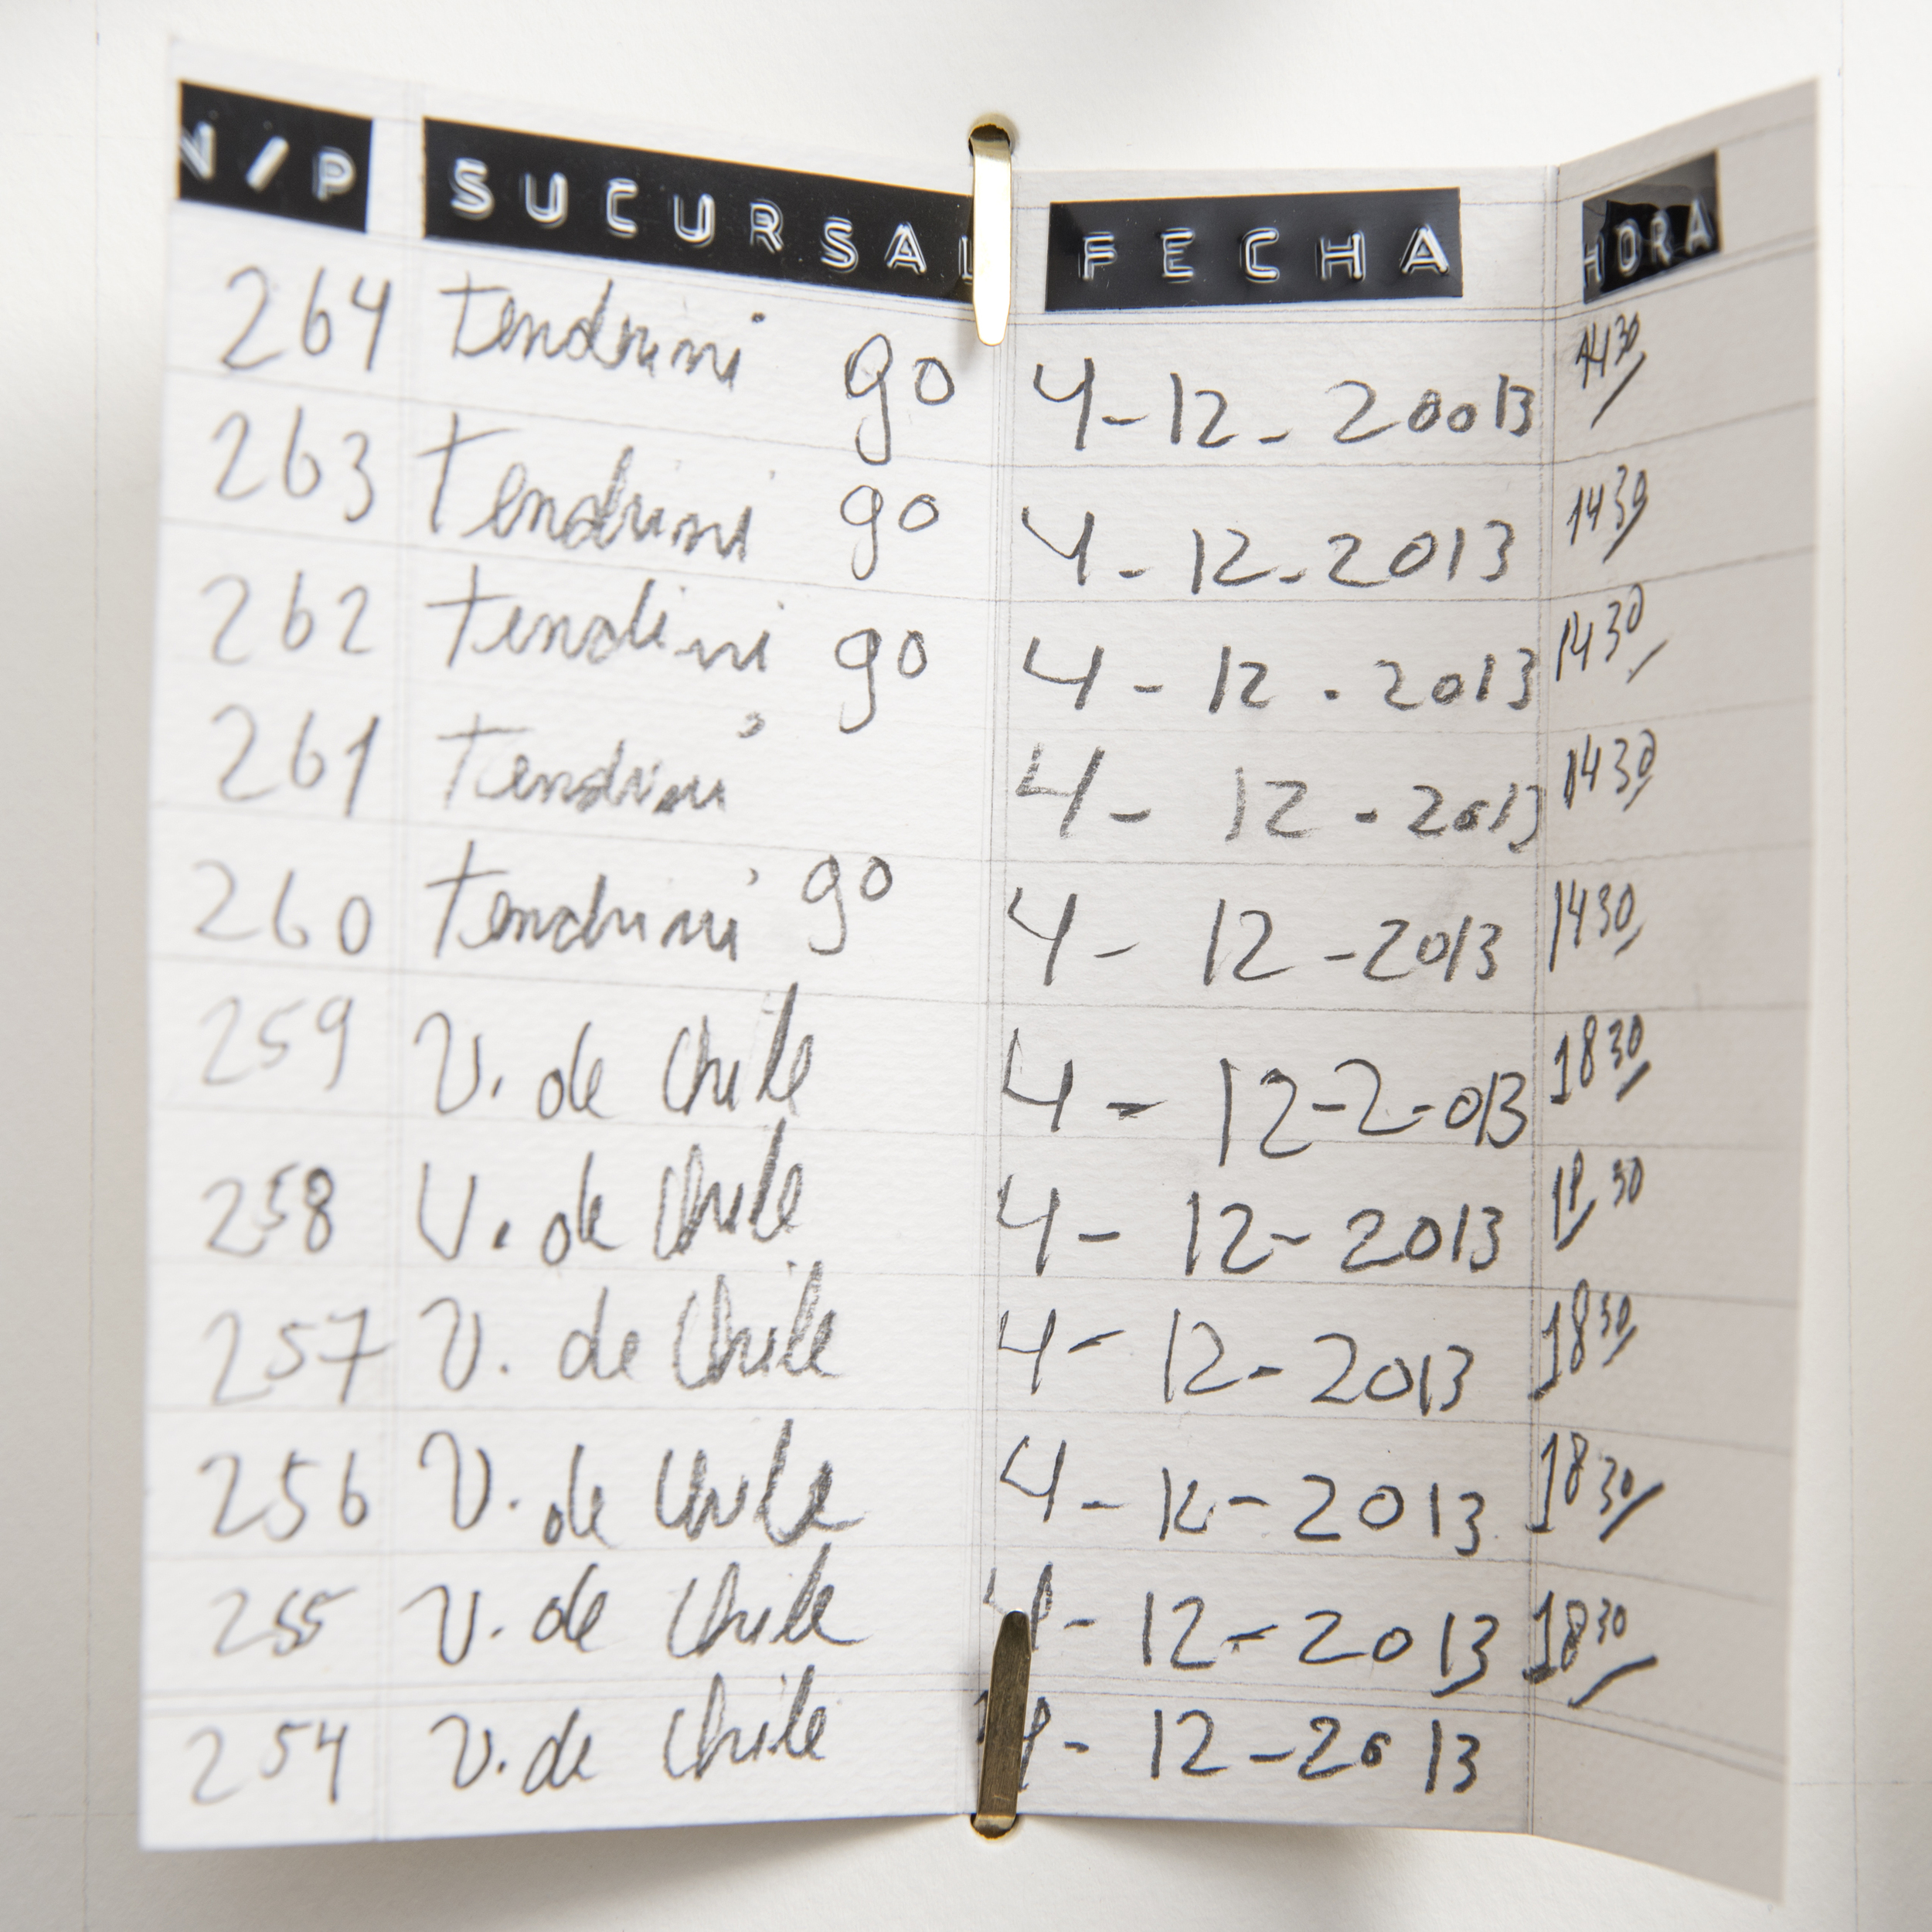 N/P SUCURSAL FECHA HORA
264 Tendrini go 4-12-20013 1430
263 Tendrini go 4-12-2013 1430
262 Tendini go 4-12-2013 1430
261 Tendrini 4-12-2013 1430
260 Tendrini go 4-12-2013 1430
259 V. de Chile 4-12-2-013 1830
258 V. de Chile 4-12-2013 1830
257 V. de Chile 4-12-2013 1830
256 V. de Chile 4-12-2013 1830
255 V. de Chile 4-12-2013 1830
254 V. de Chile 4-12-2013